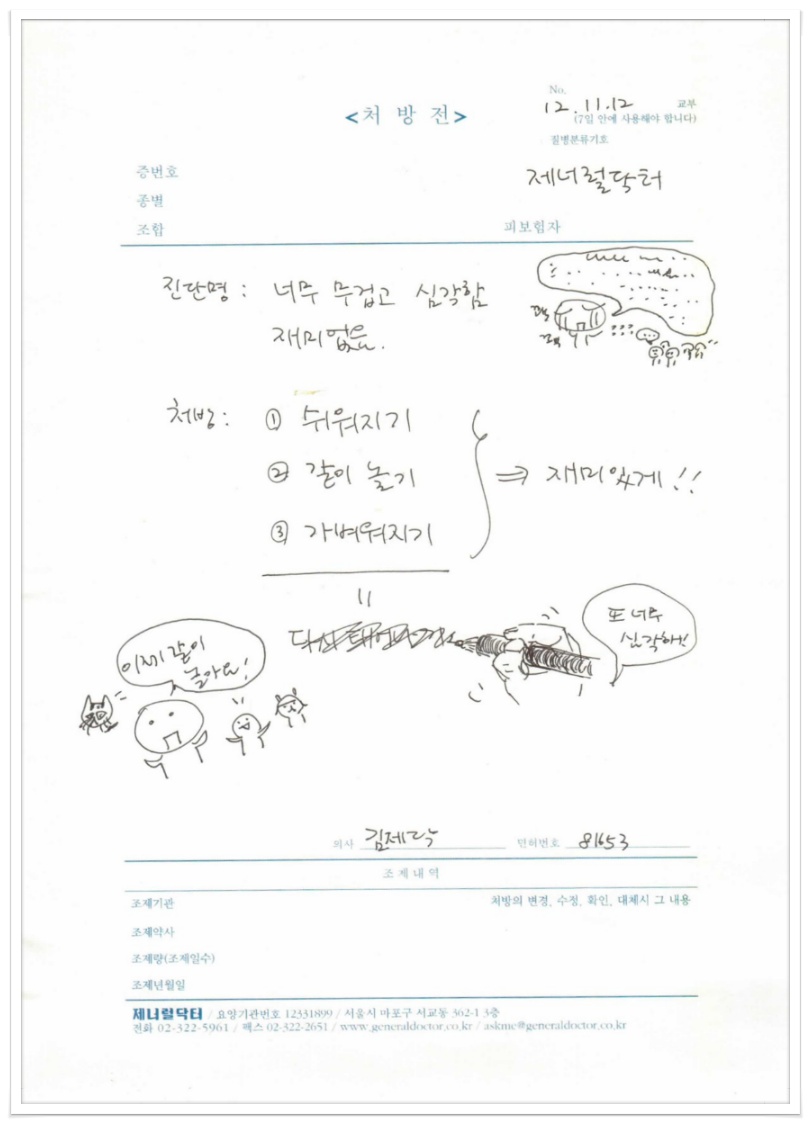 No.
12.11.12 교부
<처 방 전>
(7일 안에 사용해야 합니다)
질병분류기호
증번호
제너럴닥터
종별
조합
피보험자
진단명 : 너무 무겁고 심각함
재미없음.
...
처방 : ① 쉬워지기
② 같이 놀기
③ 가벼워지기
⇒ 재미있게!!
=
또 너무
심각해!!
이제 같이
놀아요!
의사 김제닥
면허번호 81653
조 제 내 역
조제기관
처방의 변경, 수정, 확인, 대체시 그 내용
조제약사
조제량(조제일수)
조제년월일
제너럴닥터 / 요양기관번호 12331899 / 서울시 마포구 서교동 362-1 3층
전화 02-322-5961 / 팩스 02-322-2651 / www.generaldoctor.co.kr / askme@generaldoctor.co.kr